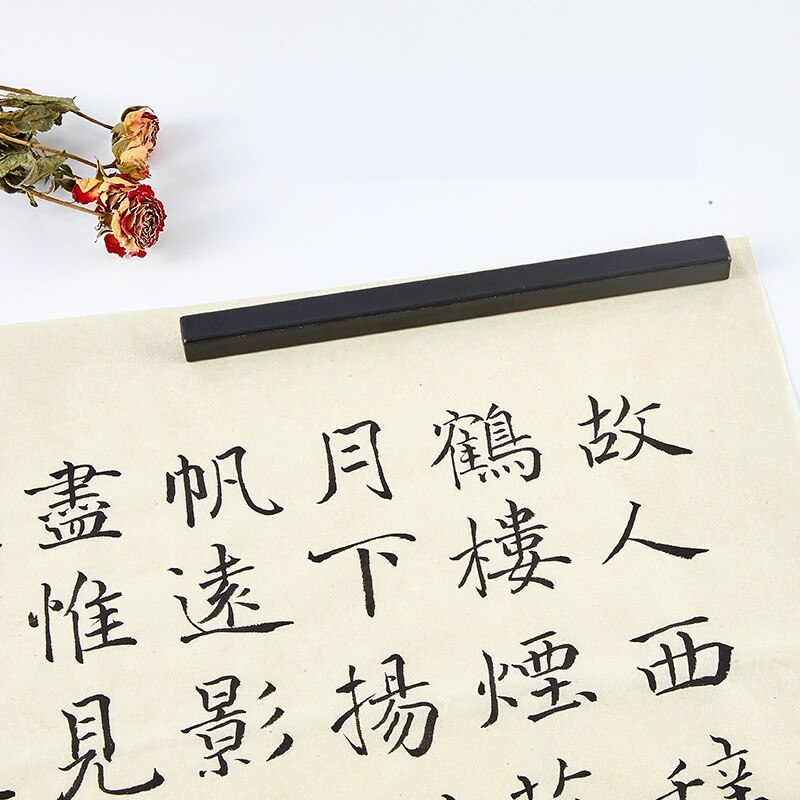 故人西
鶴樓煙
月下揚
帆遠影
盡惟見